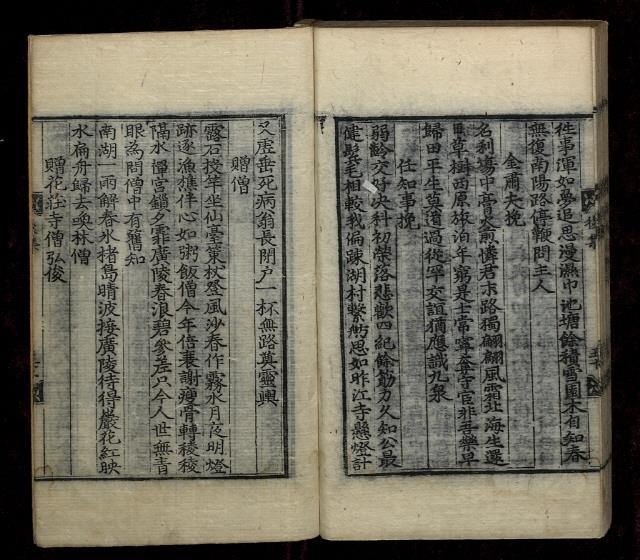 往事渾如夢追思漫濕巾池塘餘積雪園木自知春
無復南陽路停鞭問主人
金肅夫挽
名利場中膏火煎憐君末路獨翩翩風霜北海生還
日草樹西原旅泊年窮是士常寧奪守官非吾樂早
歸田平生莫遣過從罕交誼猶應識九泉
任知事挽
弱齡交好决科初榮落悲歡四紀餘筋力久知公最
健髮毛相較我偏踈湖村繫舫思如昨江寺懸燈計
又虛垂死病翁長閉戶一杯無路奠靈輿
贈僧
露石挍年坐仙臺策杖登風沙春作霧水月夜明燈
跡逐漁樵伴心如粥飯僧今年倍衰謝瘦骨轉稜稜
隔水禪宮鎖夕霏廣陵春浪碧參差只今人世無青
眼爲問僧中有舊知
南湖一雨解春氷楮島晴波接廣陵待得巖花紅映
水扁舟歸去喚林僧
贈花莊寺僧弘俊